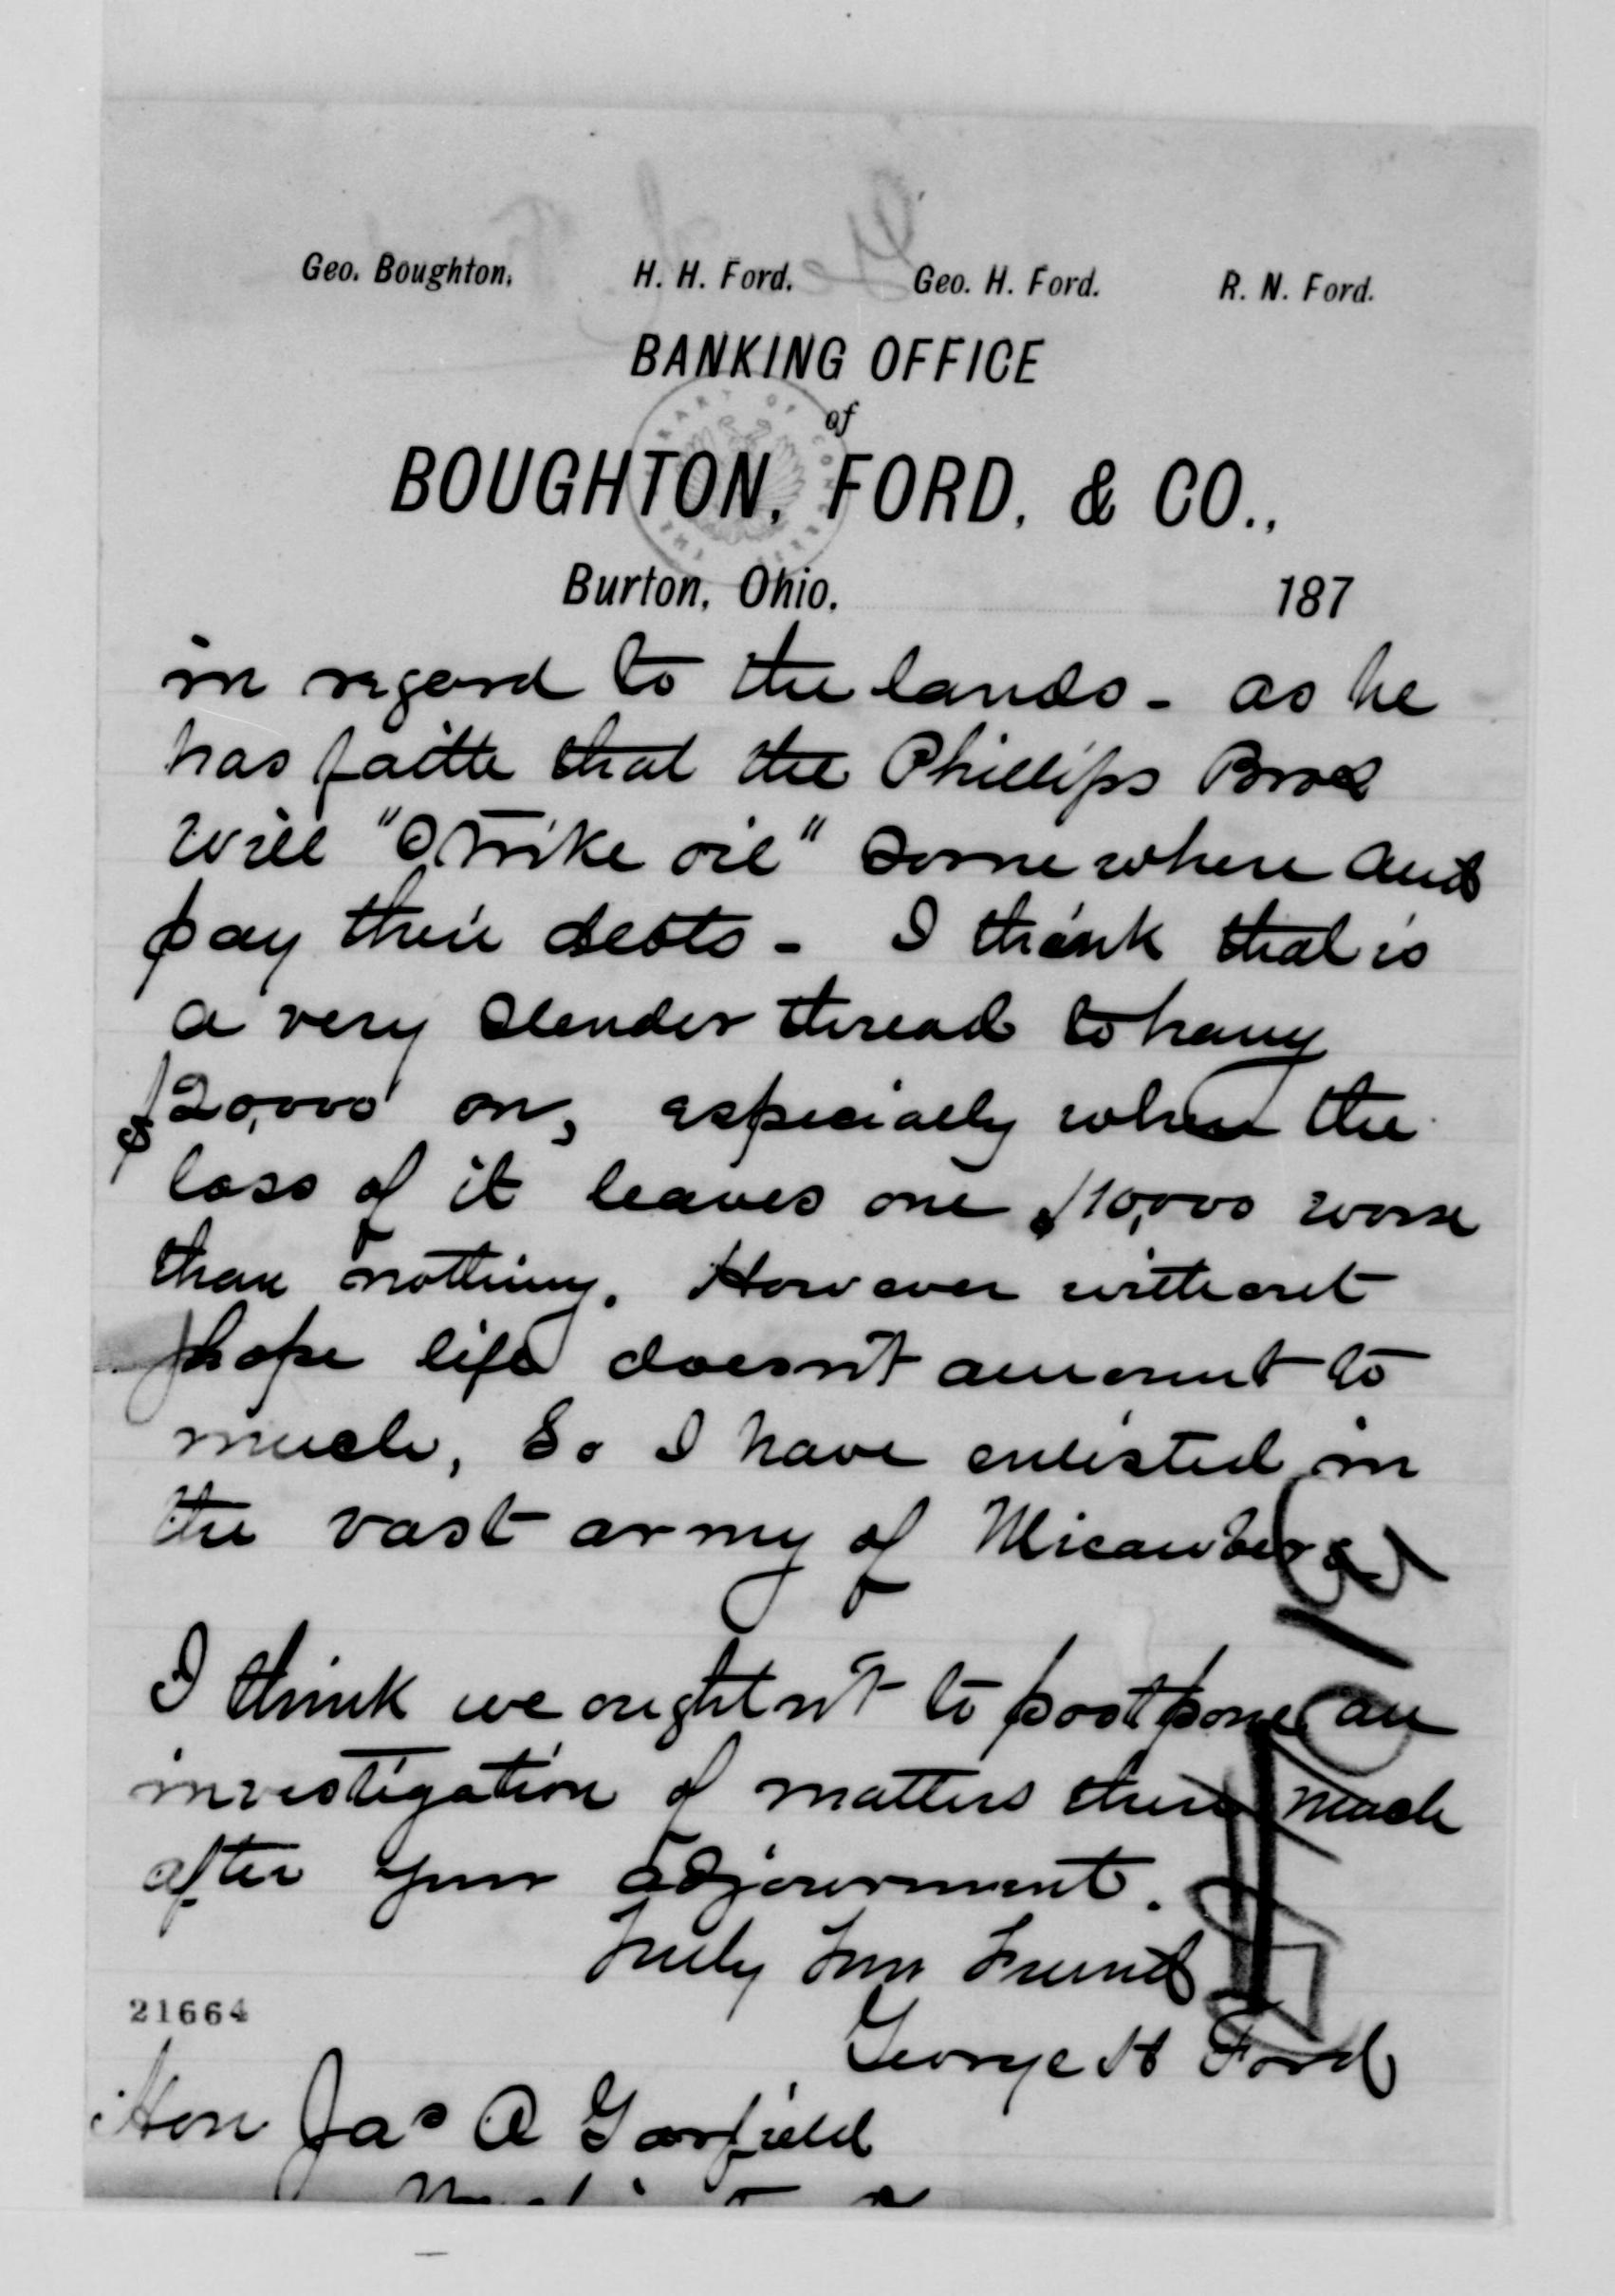 Geo. Boughton. H. H. Ford. Geo. H. Ford. R. N. Ford.
BANKING OFFICE
of
BOUGHTON, FORD, & CO.,
Burton, Ohio. 187
in regard to the lands - as he
has faith that the Phillips Bros
will "Strike oil" somewhere and
pay their debts - I think that is
a very slender thread to hang
$20,000 on, especially when the
loss of it leaves one $10,000 worse
than nothing. However without
hope life doesn't amount to
much, So I have enlisted in
the vast army of Micawbers
I think we oughtn't to postpone an
investigation of matters there much
after your adjournment.
Truly Your Friend
George H Ford
21664
Hon Jas A Garfield